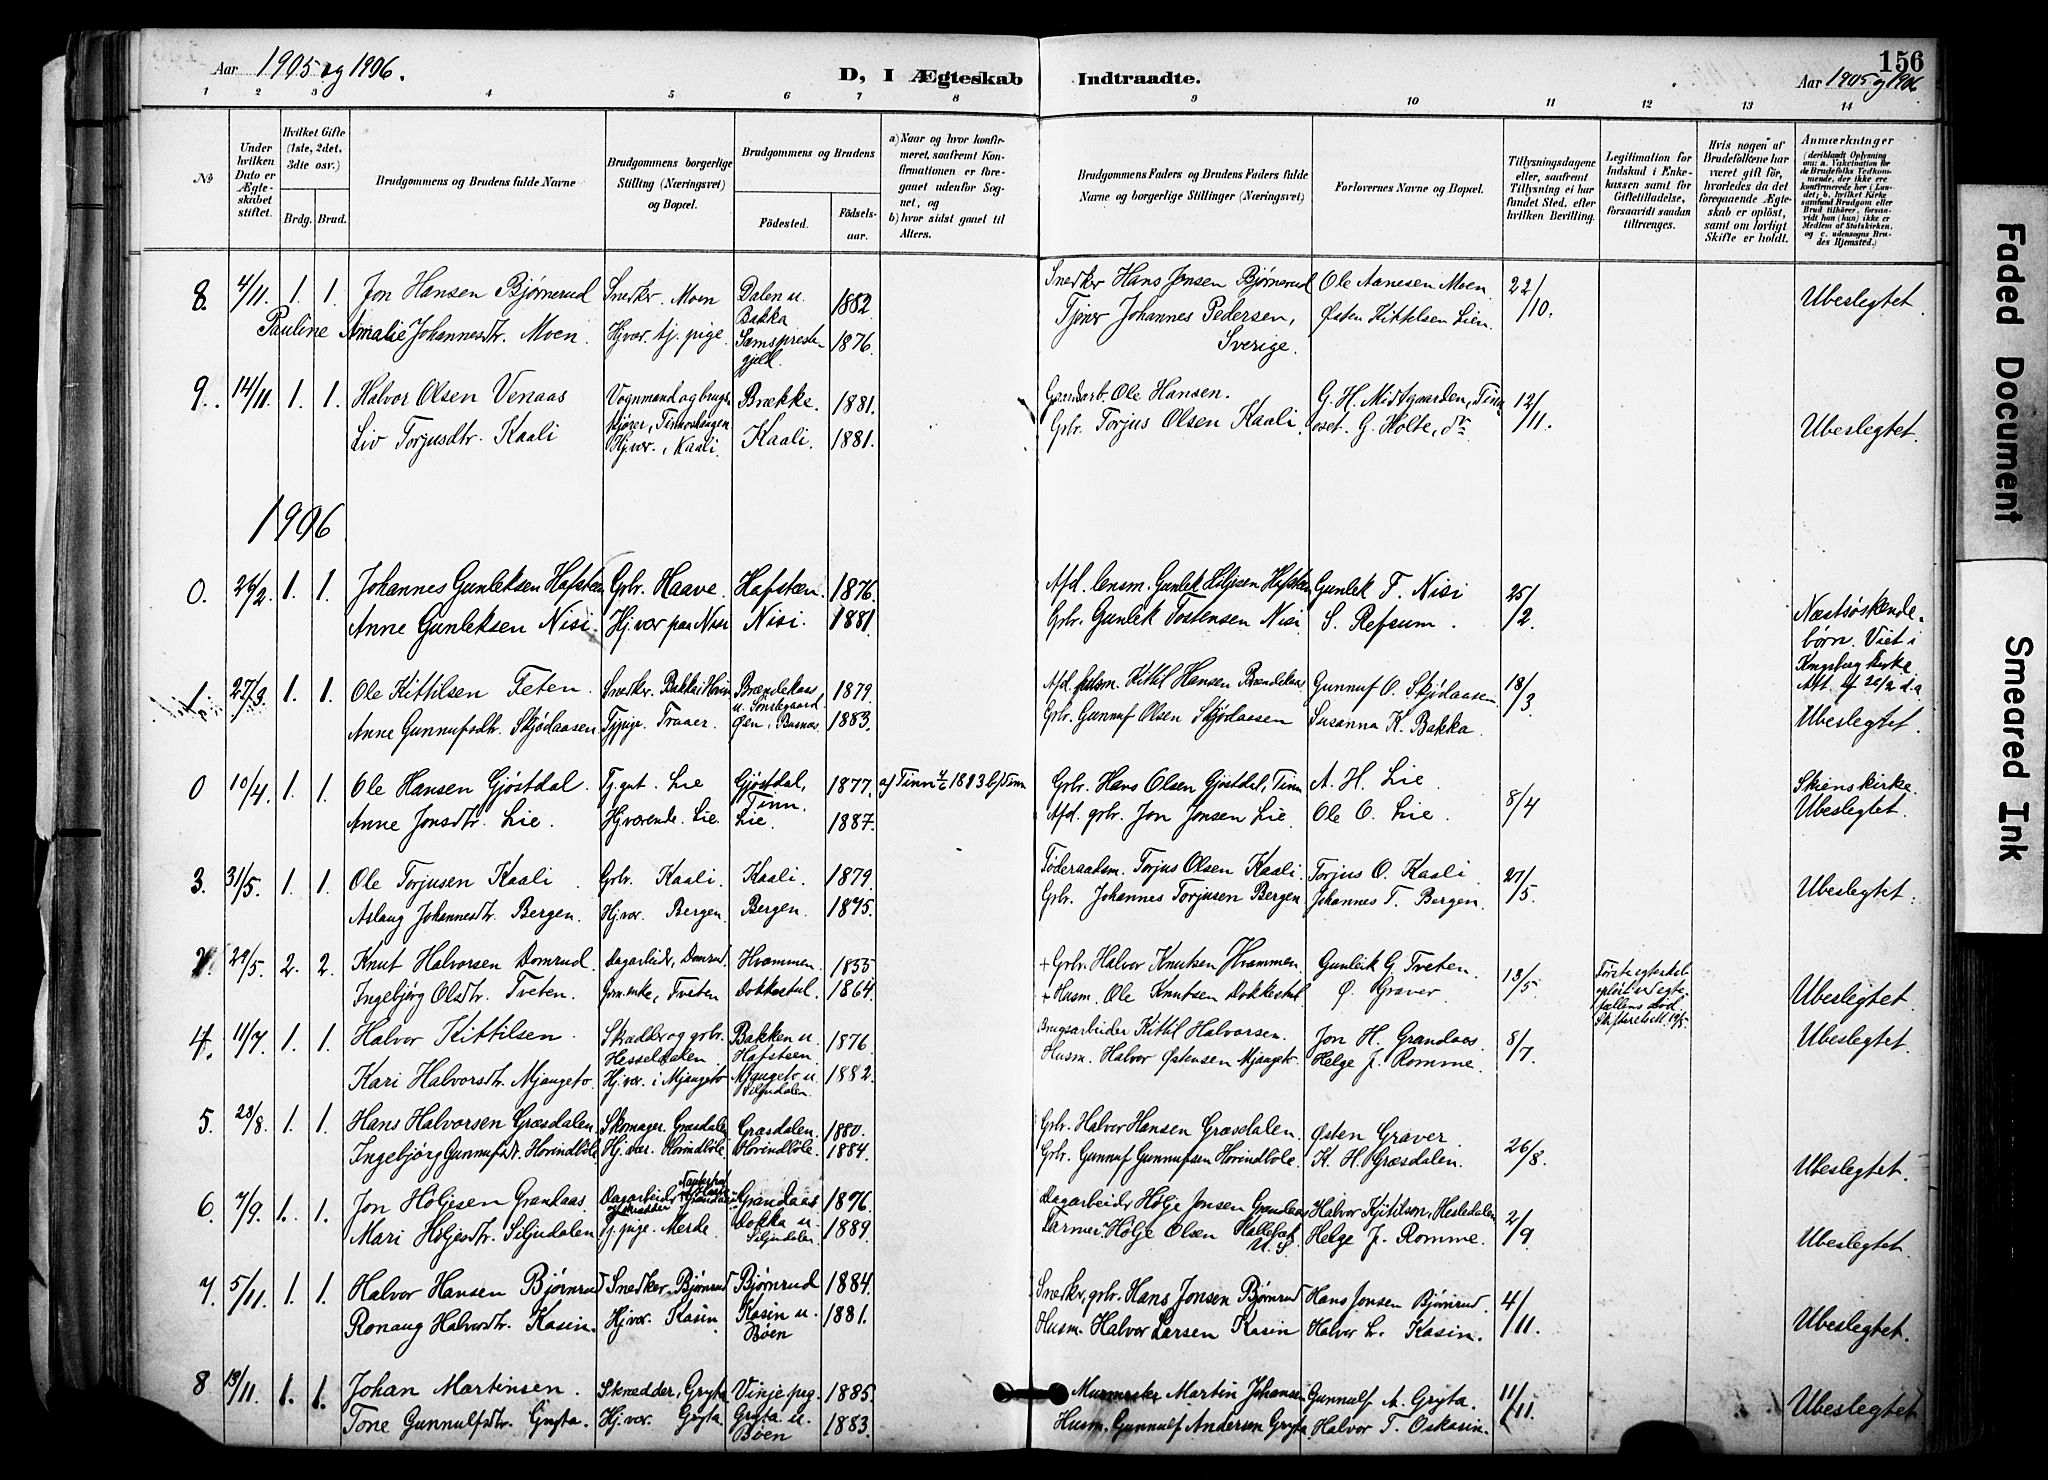 Aar 1905 og 1906.
D, I Ægteskab Indtraadte.
156
Aar 1905 og 1906
1 2 3 4 5 6 7 8 9 10 11 12 13 14
No
Under hvilken Dato er Ægteskabet stiftet.
Hvilket Gifte (1ste, 2det, 3die osv.)
Brdg. Brud.
Brudgommens og Brudens fulde Navne
Brudgommens borgerlige Stilling (Næringsvei) og Bopæl.
Brudgommens og Brudens
Fødested. Fødselsaar.
a) Naar og hvor konfirmeret, saafremt Konfirmationen er foregaaet udenfor Sognet, og
b) hvor sidst gaaet til Alters.
Brudgommens Faders og Brudens Faders fulde Navne og borgerlige Stillinger (Næringsvei)
Forlovernes Navne og Bopæl.
Tillysningsdagene eller, saafremt Tillysning ei har fundet Sted, efter hvilken Bevilling.
Legitimation for Indskud i Enkekassen samt for Giftetilladelse, forsaavidt saadan tiltrænges.
Hvis nogen af Brudefolkene har været gift før, hvorledes da det foregaaende Ægteskab er opløst, samt om lovligt Skifte er holdt.
Anmærkninger
(deriblandt Oplysning om: a. Vakcination for de Brudefolks Vedkommende, der ikke ere konfirmerede her i Landet; b. hvilket Kirkesamfund Brudgom eller Brud tilhører, forsaavidt han (hun) ikke er Medlem af Statskirken, og c. udensogns Brudes Hjemsted.)
8. 4/11. 1. 1. Jon Hansen Bjørnerud Snedkr. Moen Dalen u. Bakka 1882. Snedker Hans Jonsen Bjørnerud Ole Aanesen Moen. 22/10.
Pauline Amalie Johannesdtr. Moen. Hjvær. tj. pige. 1876. Tjener Johannes Pedersen, Sverige. Østen Kittilsen Lien. Ubeslegtet.
9. 14/11. 1. 1. Halvor Olsen Venaas Vognmand og Brække. 1881. Ole Hansen. G. H. Midtgaarden, 12/11.
Liv Torjusdtr. Kaali Hjvær., Kaali. Kaali. 1881. Grbr. Torjus Olsen Kaali. G. Holte, Ubeslegtet.
1906
0. 26/2. 1. 1. Johannes Gunleksen Hafsten Grbr. Haave Hafsten. 1876. Afd. lensm. Gunlek Hafsten Gunlek T. Nisi 25/2.
Anne Gunleksen Nisi. Hjvær paa Nisi Nisi. 1881. Grbr. Gunlek Tostensen Nisi S. Refsum. Næstsøskendebørn. Viet i
Kngsberg kirke
1. 27/3. 1. 1. Ole Kittilsen Teten. Snedkr. Bakka 1879. Afd. Kittil Hansen Gunnuf O. Skjødaasen 18/3
Anne Gunnufsdtr. Skjødaasen Tjpige. Traaer. 1883. Grbr. Gunnuf Olsen Skjødaasen Susanna K. Bakka. Ubeslegtet.
0 10/4. 1. 1. Ole Hansen Gjøstdal. Tj. gut. Lie Gjøstdal, Tinn. 1877. a) Tinn b) Tinn Grbr. Hans Olsen Gjøstdal, Tinn A. H. Lie. 8/4 Skienskirke.
Anne Jonsdtr. Lie. Hjværende. Lie. Lie. 1887. Afd. grbr. Jon Jonsen Lie. Ole O. Lie. Ubeslegtet.
3. 31/5. 1. 1. Ole Torjusen Kaali. Grbr. Kaali. Kaali. 1879. Føderaadsm. Torjus Olsen Kaali. Torjus O. Kaali. 27/5.
Aslaug Johannesdtr. Bergen. Hjvær. Bergen. Bergen. 1875. Grbr. Johannes Torjusen Bergen Johannes T. Bergen. Ubeslegtet.
29/5. 2. 2. Knut Halvorsen Domrud. Dagarbeidr, Domrud. Hvammen. 1855 + Grbr. Halvor Knutsen Hvammen. Gunleik G. Tveten. 13/5
Ingebjørg Olsdtr. Tveten. Tveten Dokkestul. 1864. + Husm. Ole Knutsen Dokkestul Ø. Graver. Ubeslegtet
4. 11/7. 1. 1. Halvor Kittilsen. Skrædder og grbr. Bakken u. Hafsteen 1876. Brugsarbeider Kittil Halvorsen. Jon H. Grandaas 8/7.
Kari Halvorsdtr. Mjaugeto. Hjvær. i Mjaugeto Mjaugeto u. Siljudalen. 1882. Husm. Halvor Østensen Mjaugeto. Helge J. Romme. Ubeslegtet.
5. 28/8. 1. 1. Hans Halvorsen Græsdalen. Skomager. Græsdalen Græsdalen. 1880. Grbr. Halvor Hansen Græsdalen. Østen Graver. 26/8.
Ingebjørg Gunnufsdt. Hovindbøle Hjvær. Hovindbøle Hovindbøle. 1884. Grbr. Gunnuf Gunnufsen Hovindbøle. K. H. Græsdalen. Ubeslegtet.
6. 7/9. 1. 1. Jon Høljesen Grandaas Dagarbeidr Grandaas 1876. Dagarbeidr Hølje Jonsen Grandaas Halvor Kjitilson, Hesledalen 2/9
Mari Høljesdtr. Siljudalen Tj. pige. Merde. Dokka u. Siljudalen. 1889. Farmer. Hølje Olsen U. S. Helge J. Romme. Ubeslegtet.
7. 5/11. 1. 1. Halvor Hansen Bjørnrud Snedker. Bjørnrud Bjørnrud 1884. Snedkr, grbr. Hans Jonsen Bjørnrud Hans Jonsen Bjørnrud. 4/11.
Ronaug Halvorsdtr. Kasin. Hjvær. Kasin Kasin u. Bøen 1881. Husm. Halvor Larsen Kasin Halvor L. Kasin. Ubeslegtet.
8 13/11. 1. 1. Johan Martinsen. Skrædder, Gryta Vinje pg. 1885. Martin Johansen Gunnulf A. Gryta. 11/11.
Tone Gunnulfsdtr. Gryta. Hjvær. Gryta. Gryta u. Bøen 1883. Husm. Gunnulf Andersen Gryta Halvor T. Ubeslegtet
Faded Document
Smeared Ink